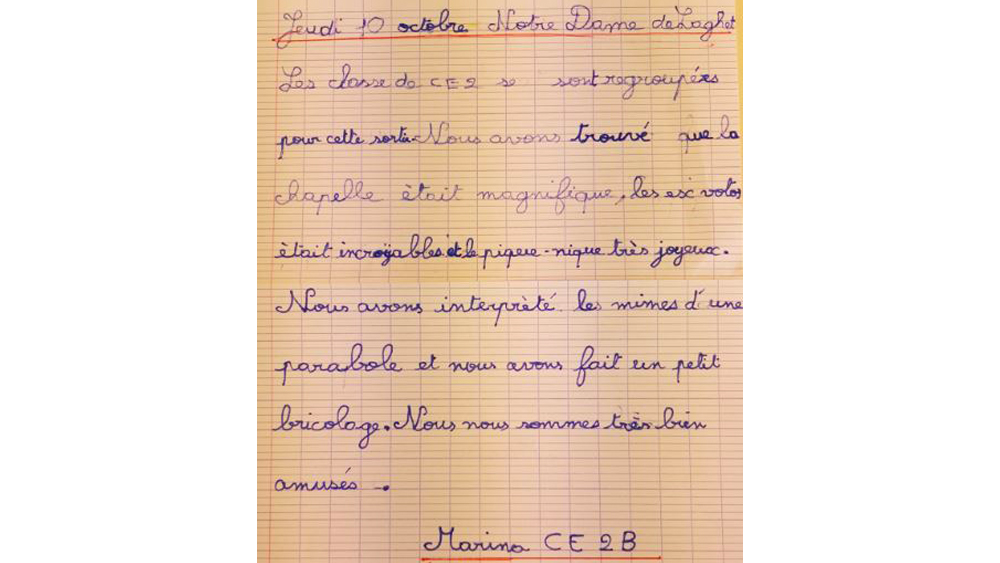 Jeudi 10 octobre Notre Dame de Laghet
Les classe de CE2 se sont regroupées
pour cette sortie. Nous avons trouvé que la
chapelle ètait magnifique, les ex votos
ètait incroyables et le pique-nique très joyeux.
Nous avons interprèté les mimes d'une
parabole et nous avons fait un petit
bricolage. Nous nous sommes très bien
amusés.
Marina CE 2B